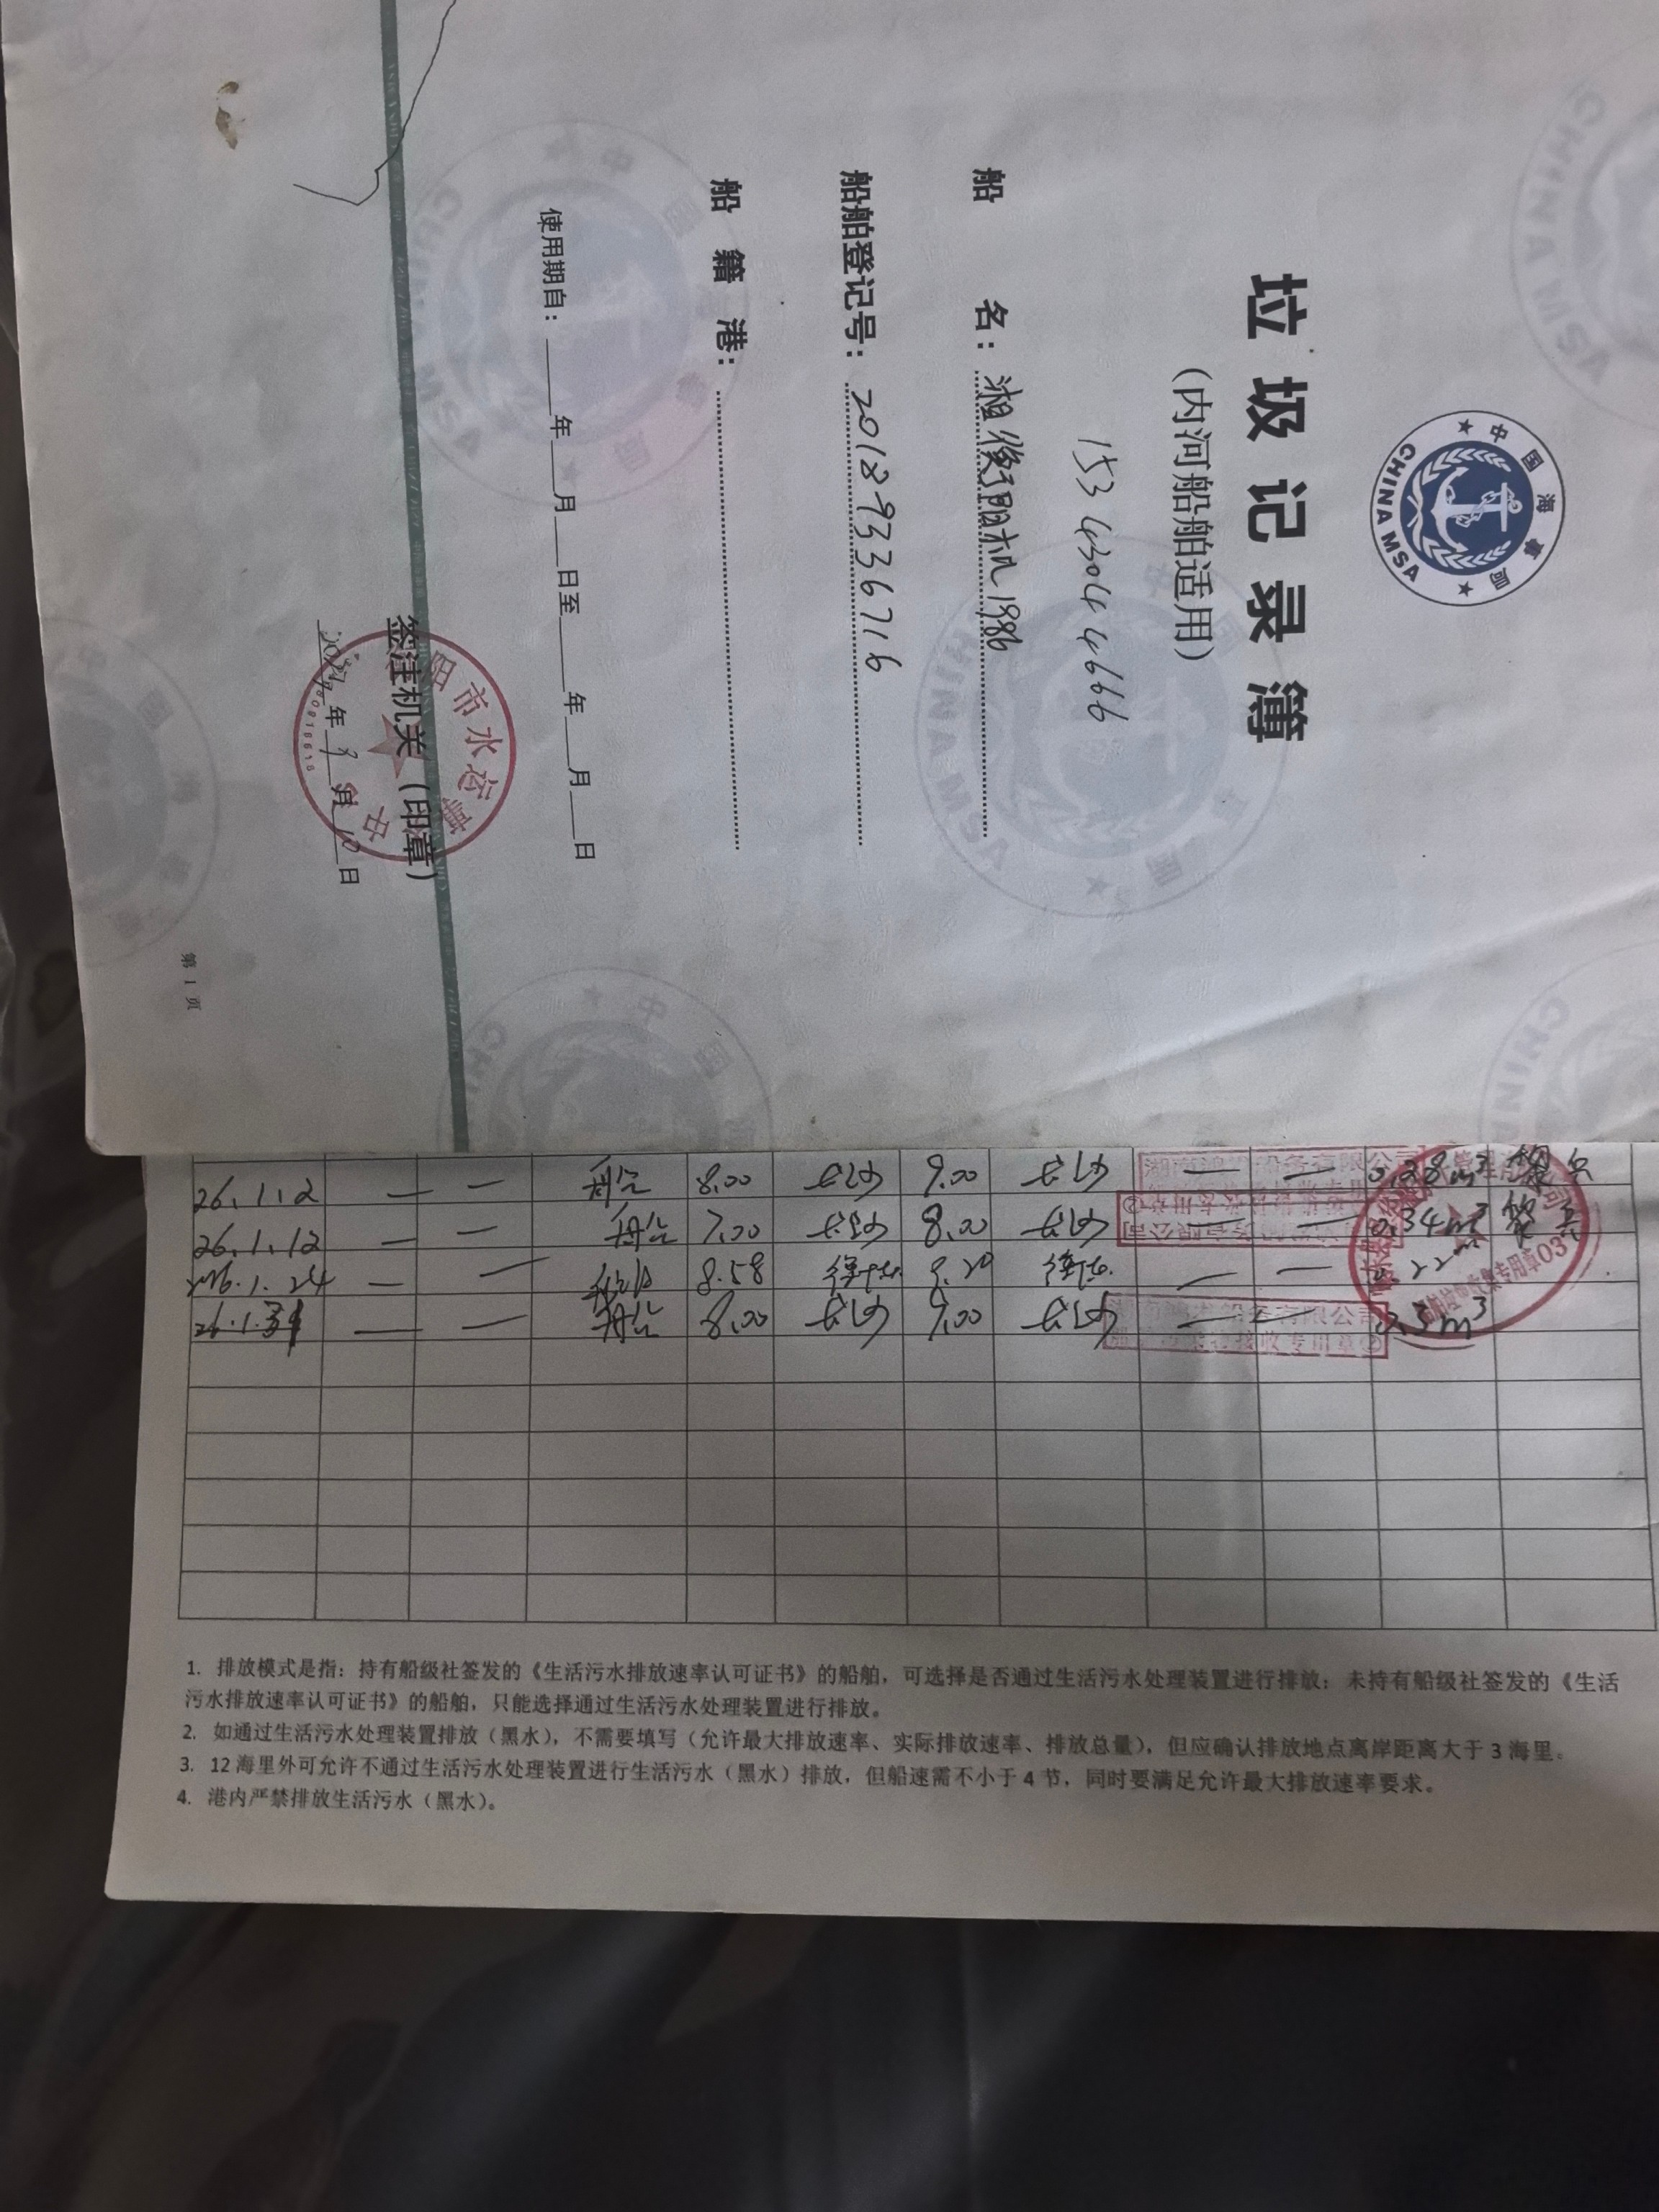 中国海事局
CHINA MSA
垃圾记录簿
（内河船舶适用）
15343044666
船 名：湘衡阳机1986
船舶登记号：20189336716
船 籍 港：
使用期自：____年___月___日至____年___月___日
签注机关（印章）
年 9 月 10 日
阳市水运
第 1 页
26.1.2 — — 船台 8.00 长沙 9.00 长沙 — — 0.38m³
26.1.12 — — 船台 7.00 长沙 8.00 长沙 — — 0.34m³
2026.1.24 — — 8.58 9.20 — —
26.1.31 — — 船台 8.00 长沙 9.00 长沙 — — 0.3m³
1. 排放模式是指：持有船级社签发的《生活污水排放速率认可证书》的船舶，可选择是否通过生活污水处理装置进行排放；未持有船级社签发的《生活
污水排放速率认可证书》的船舶，只能选择通过生活污水处理装置进行排放。
2. 如通过生活污水处理装置排放（黑水），不需要填写（允许最大排放速率、实际排放速率、排放总量），但应确认排放地点离岸距离大于 3 海里。
3. 12 海里外可允许不通过生活污水处理装置进行生活污水（黑水）排放，但船速需不小于 4 节，同时要满足允许最大排放速率要求。
4. 港内严禁排放生活污水（黑水）。